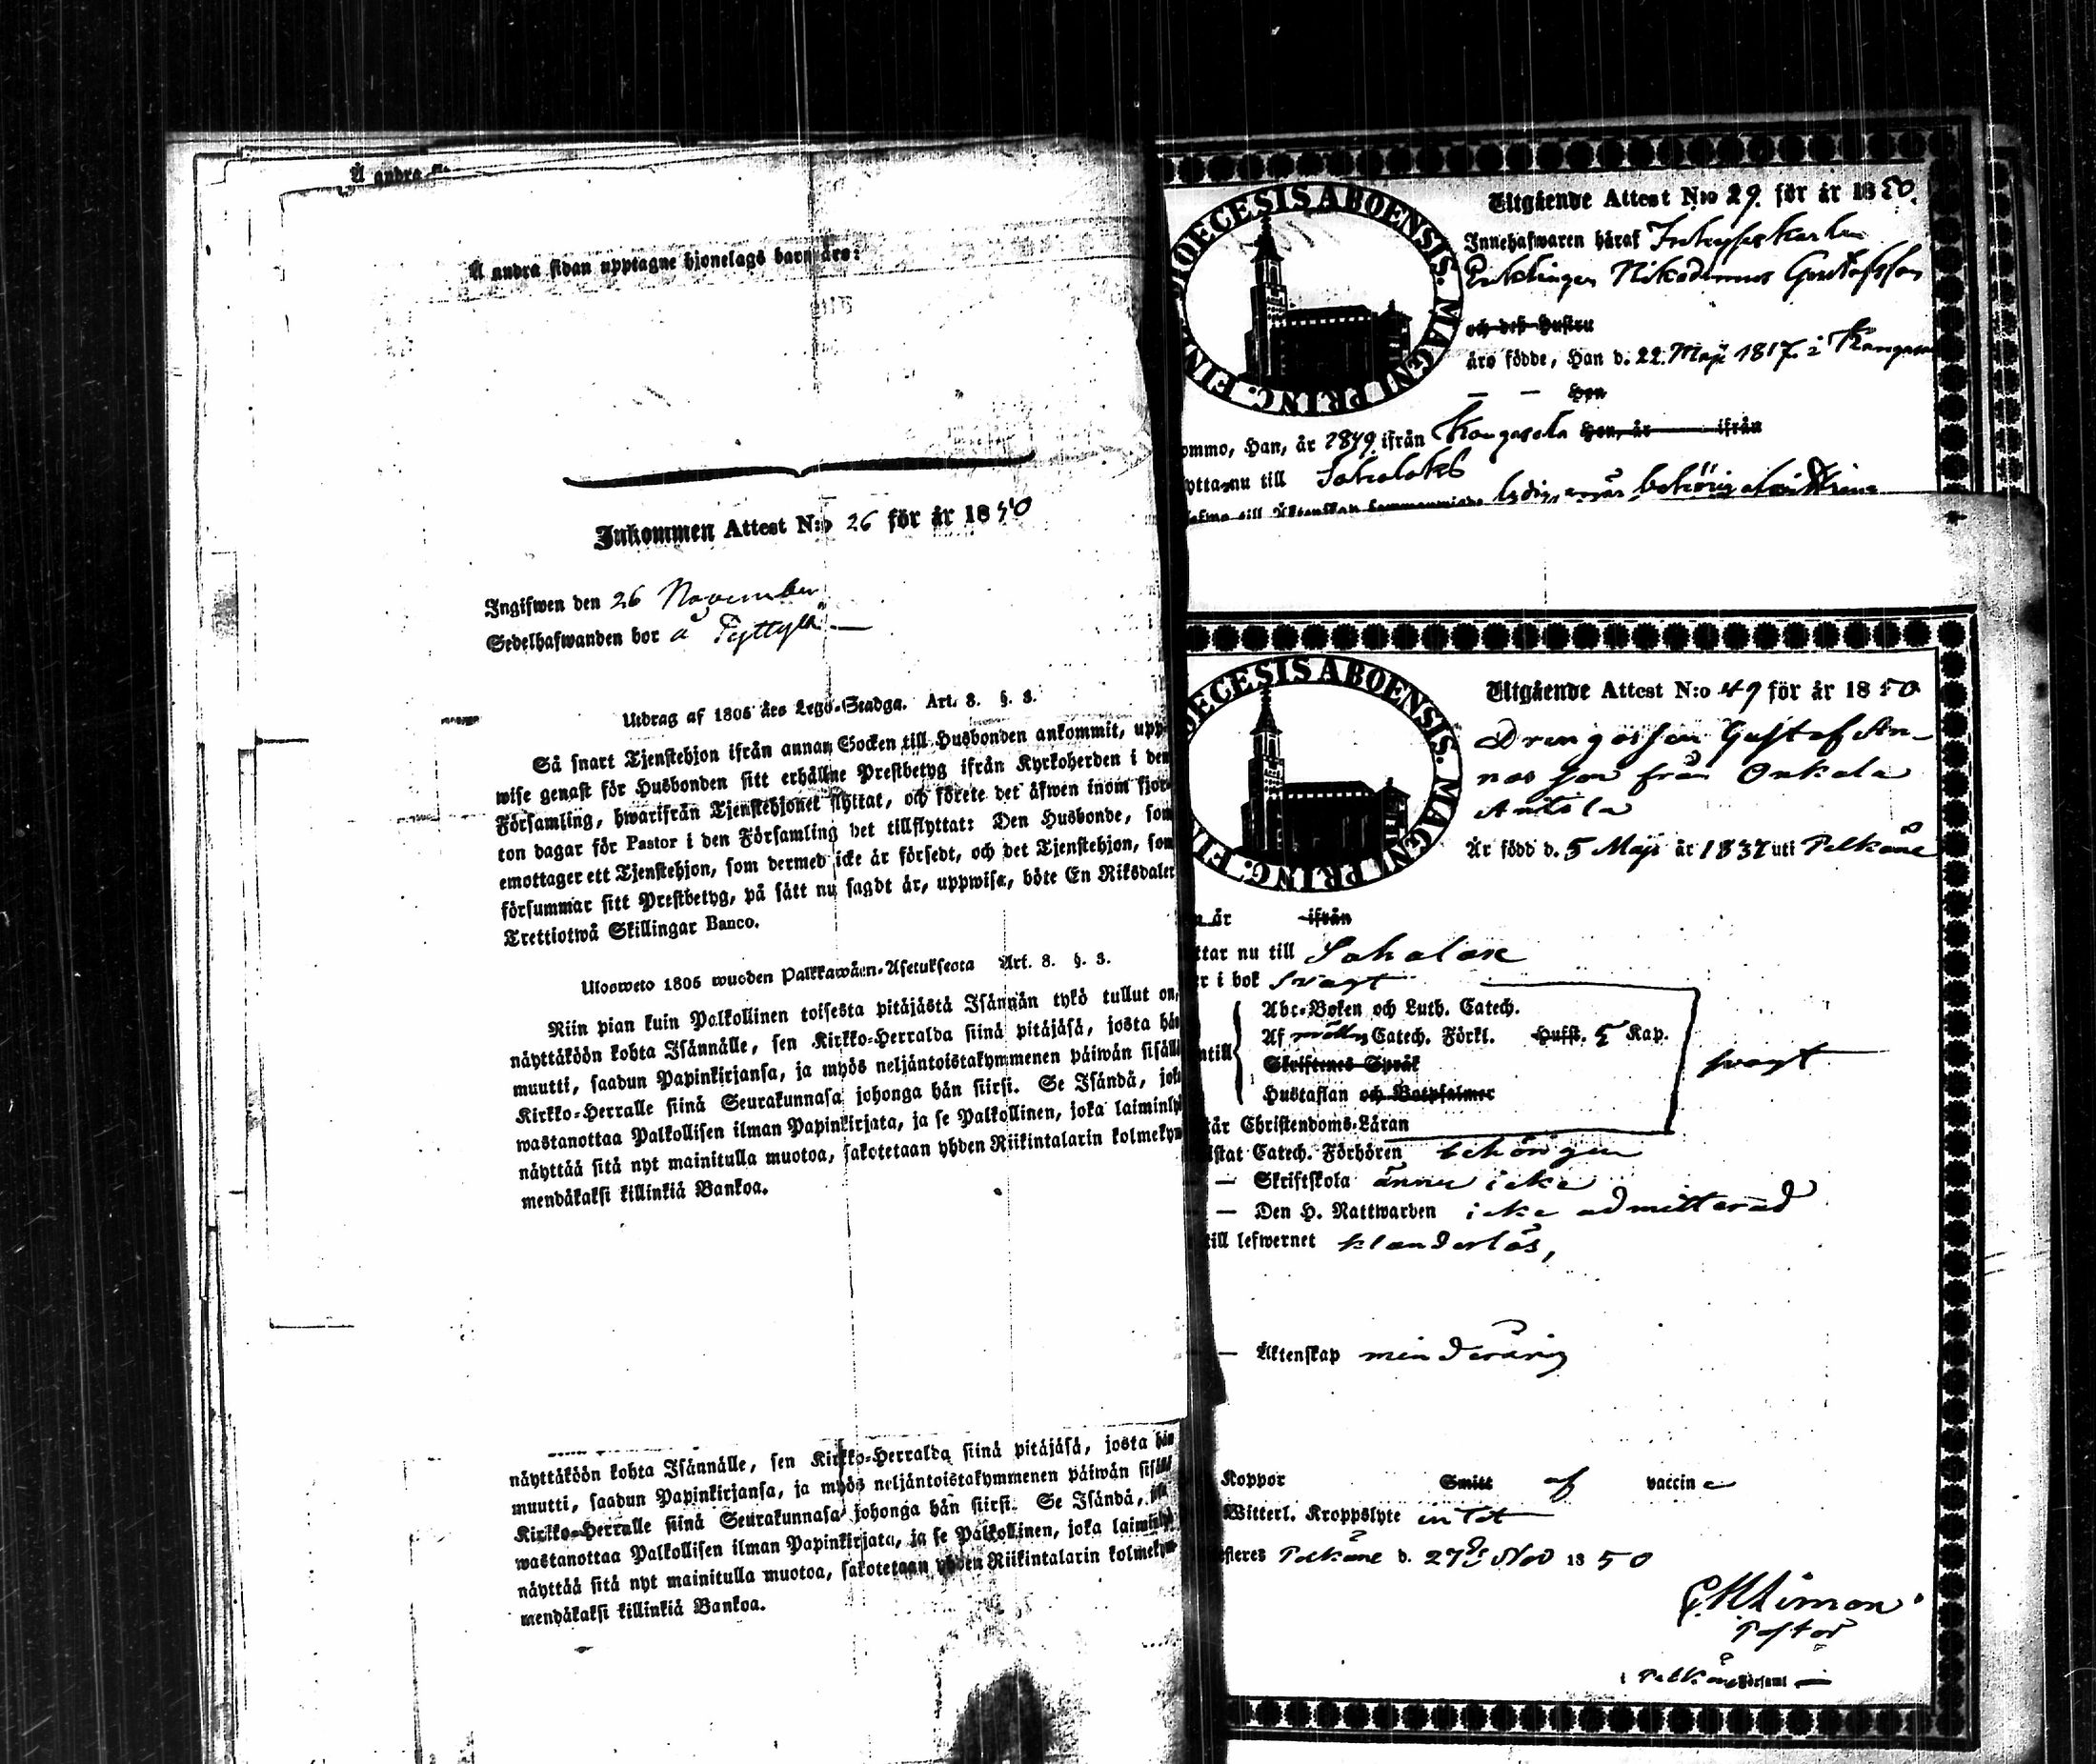 Å andra
Å andra sidan upptagne hjonelags barn äro:
Inkommen Attest N:o 26 för år 1850
Ingifwen den 26 November
Sedelhafwanden bor å Pyttylä
Utdrag af 1805 års Lego-Stadga. Art. 8. §. 3.
Så snart Tjenstehjon ifrån annan Socken till Husbonden ankommit, upp-
wise genast för Husbonden sitt erhållne Prestbetyg ifrån Kyrkoherden i den
Församling, hwarifrån Tjenstehjonet flyttat, och förete det äfwen inom fjor-
ton dagar för Pastor i den Församling det tillflyttat: Den Husbonde, som
emottager ett Tjenstehjon, som dermed icke är försedt, och det Tjenstehjon, som
försummar sitt Prestbetyg, på sätt nu sagdt är, uppwisa, böte En Riksdaler
Trettiotwå Skillingar Banco.
Ulosweto 1805 wuoden Palkkawäen-Asetuksesta Art. 8. §. 3.
Niin pian kuin Palkollinen toisesta pitäjästä Isännän tykö tullut on,
näyttäköön kohta Isännälle, sen Kirkko-Herralda siinä pitäjäsä, josta hän
muutti, saadun Papinkirjansa, ja myös neljäntoistakymmenen päiwän sisällä
Kirkko-Herralle siinä Seurakunnasa johonga hän siirsi. Se Isändä, joka
wastanottaa Palkollisen ilman Papinkirjata, ja se Palkollinen, joka laiminly
näyttää sitä nyt mainitulla muotoa, sakotetaan yhden Riikintalarin kolmekym-
mendäkaksi killinkiä Bankoa.
näyttäköön kohta Isännälle, sen Kirkko-Herralda siinä pitäjäsä, josta hän
muutti, saadun Papinkirjansa, ja myös neljäntoistakymmenen päiwän sisällä
Kirkko-Herralle siinä Seurakunnasa johonga hän siirsi. Se Isändä,
wastanottaa Palkollisen ilman Papinkirjata, ja se Palkollinen, joka laiminly
näyttää sitä nyt mainitulla muotoa, sakotetaan yhden Riikintalarin kolmekym-
mendäkaksi killinkiä Bankoa.
DIOECESIS ABOENSIS. MAGNI PRINC. FIN
Utgående Attest N:o 29. för år 1850.
Innehafwaren häraf
Nikodemus Gustafsson
och deß Hustru
äro födde, Han d. 22 Maji 1817 i Kangasala
— — Hon
ommo, Han, år 1849 ifrån Kangasala Hon, år ifrån
ytta nu till Sahalaks
DIOECESIS ABOENSIS. MAGNI PRINC. FIN
Utgående Attest N:o 49 för år 1850
Drengossen Gustaf An-
nas son från Onkala
Anttila
Är född d. 5 Maji år 1837 uti Pelkäne
n år ifrån
ttar nu till Sahalax
r i bok svagt
Abc-Boken och Luth. Catech.
Af Catech. Förkl. Hufst. 5 Kap.
ntill
Skriftenes Språk svagt
Hustaflan och Botpsalmer
tär Christendoms-Läran
istat Catech. Förhören behörigen
— Skriftskola ännu icke
— Den H. Nattwarden icke admitterad
till lefwernet klanderlös,
— Äktenskap minderårig
Koppor Smitt af vaccine
Witterl. Kroppslyte intet
esteres Pelkäne d. 27de Nov 1850
Pastor
i Pelkäne Församl.